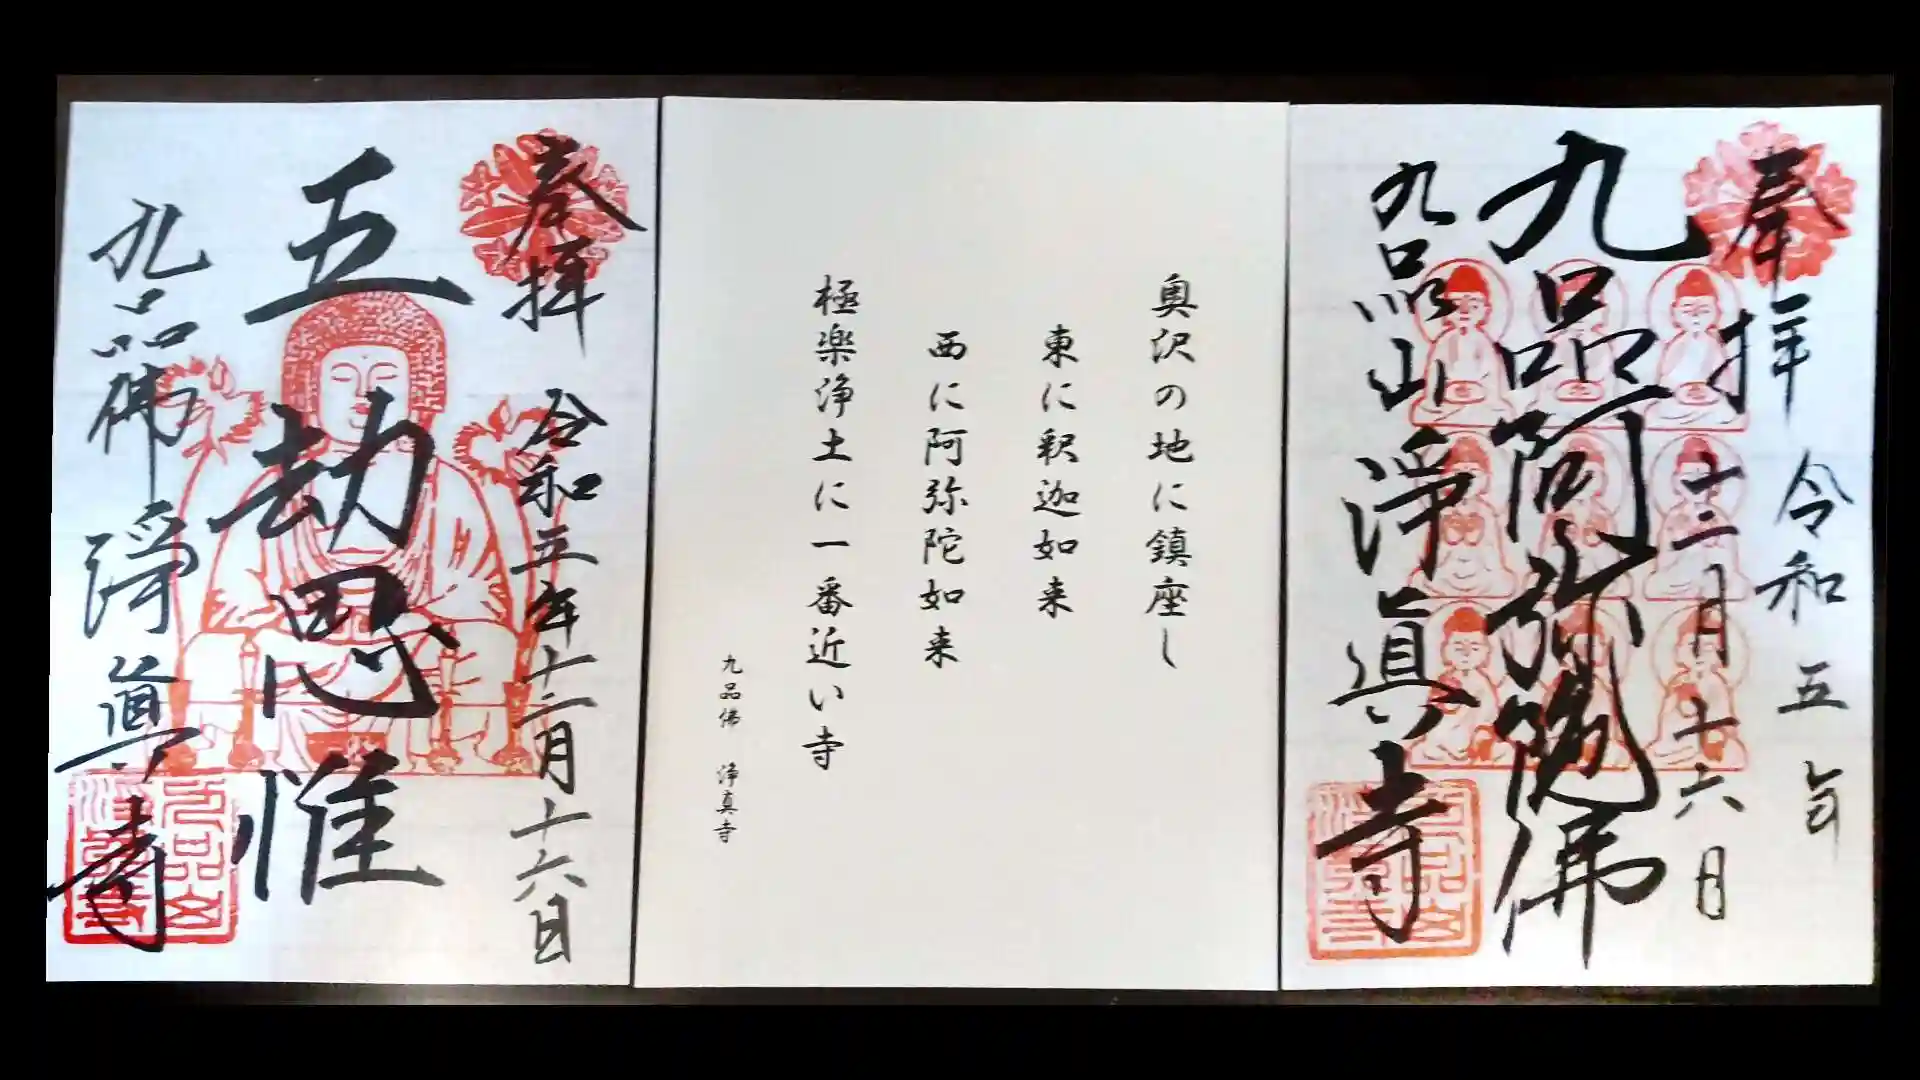 奉拝 令和五年十二月十六日
五劫思惟
九品佛 浄真寺
奥沢の地に鎮座し
東に釈迦如来
西に阿弥陀如来
極楽浄土に一番近い寺
九品佛 浄真寺
奉拝 令和五年
十二月十六日
九品阿弥陀佛
九品山淨眞寺